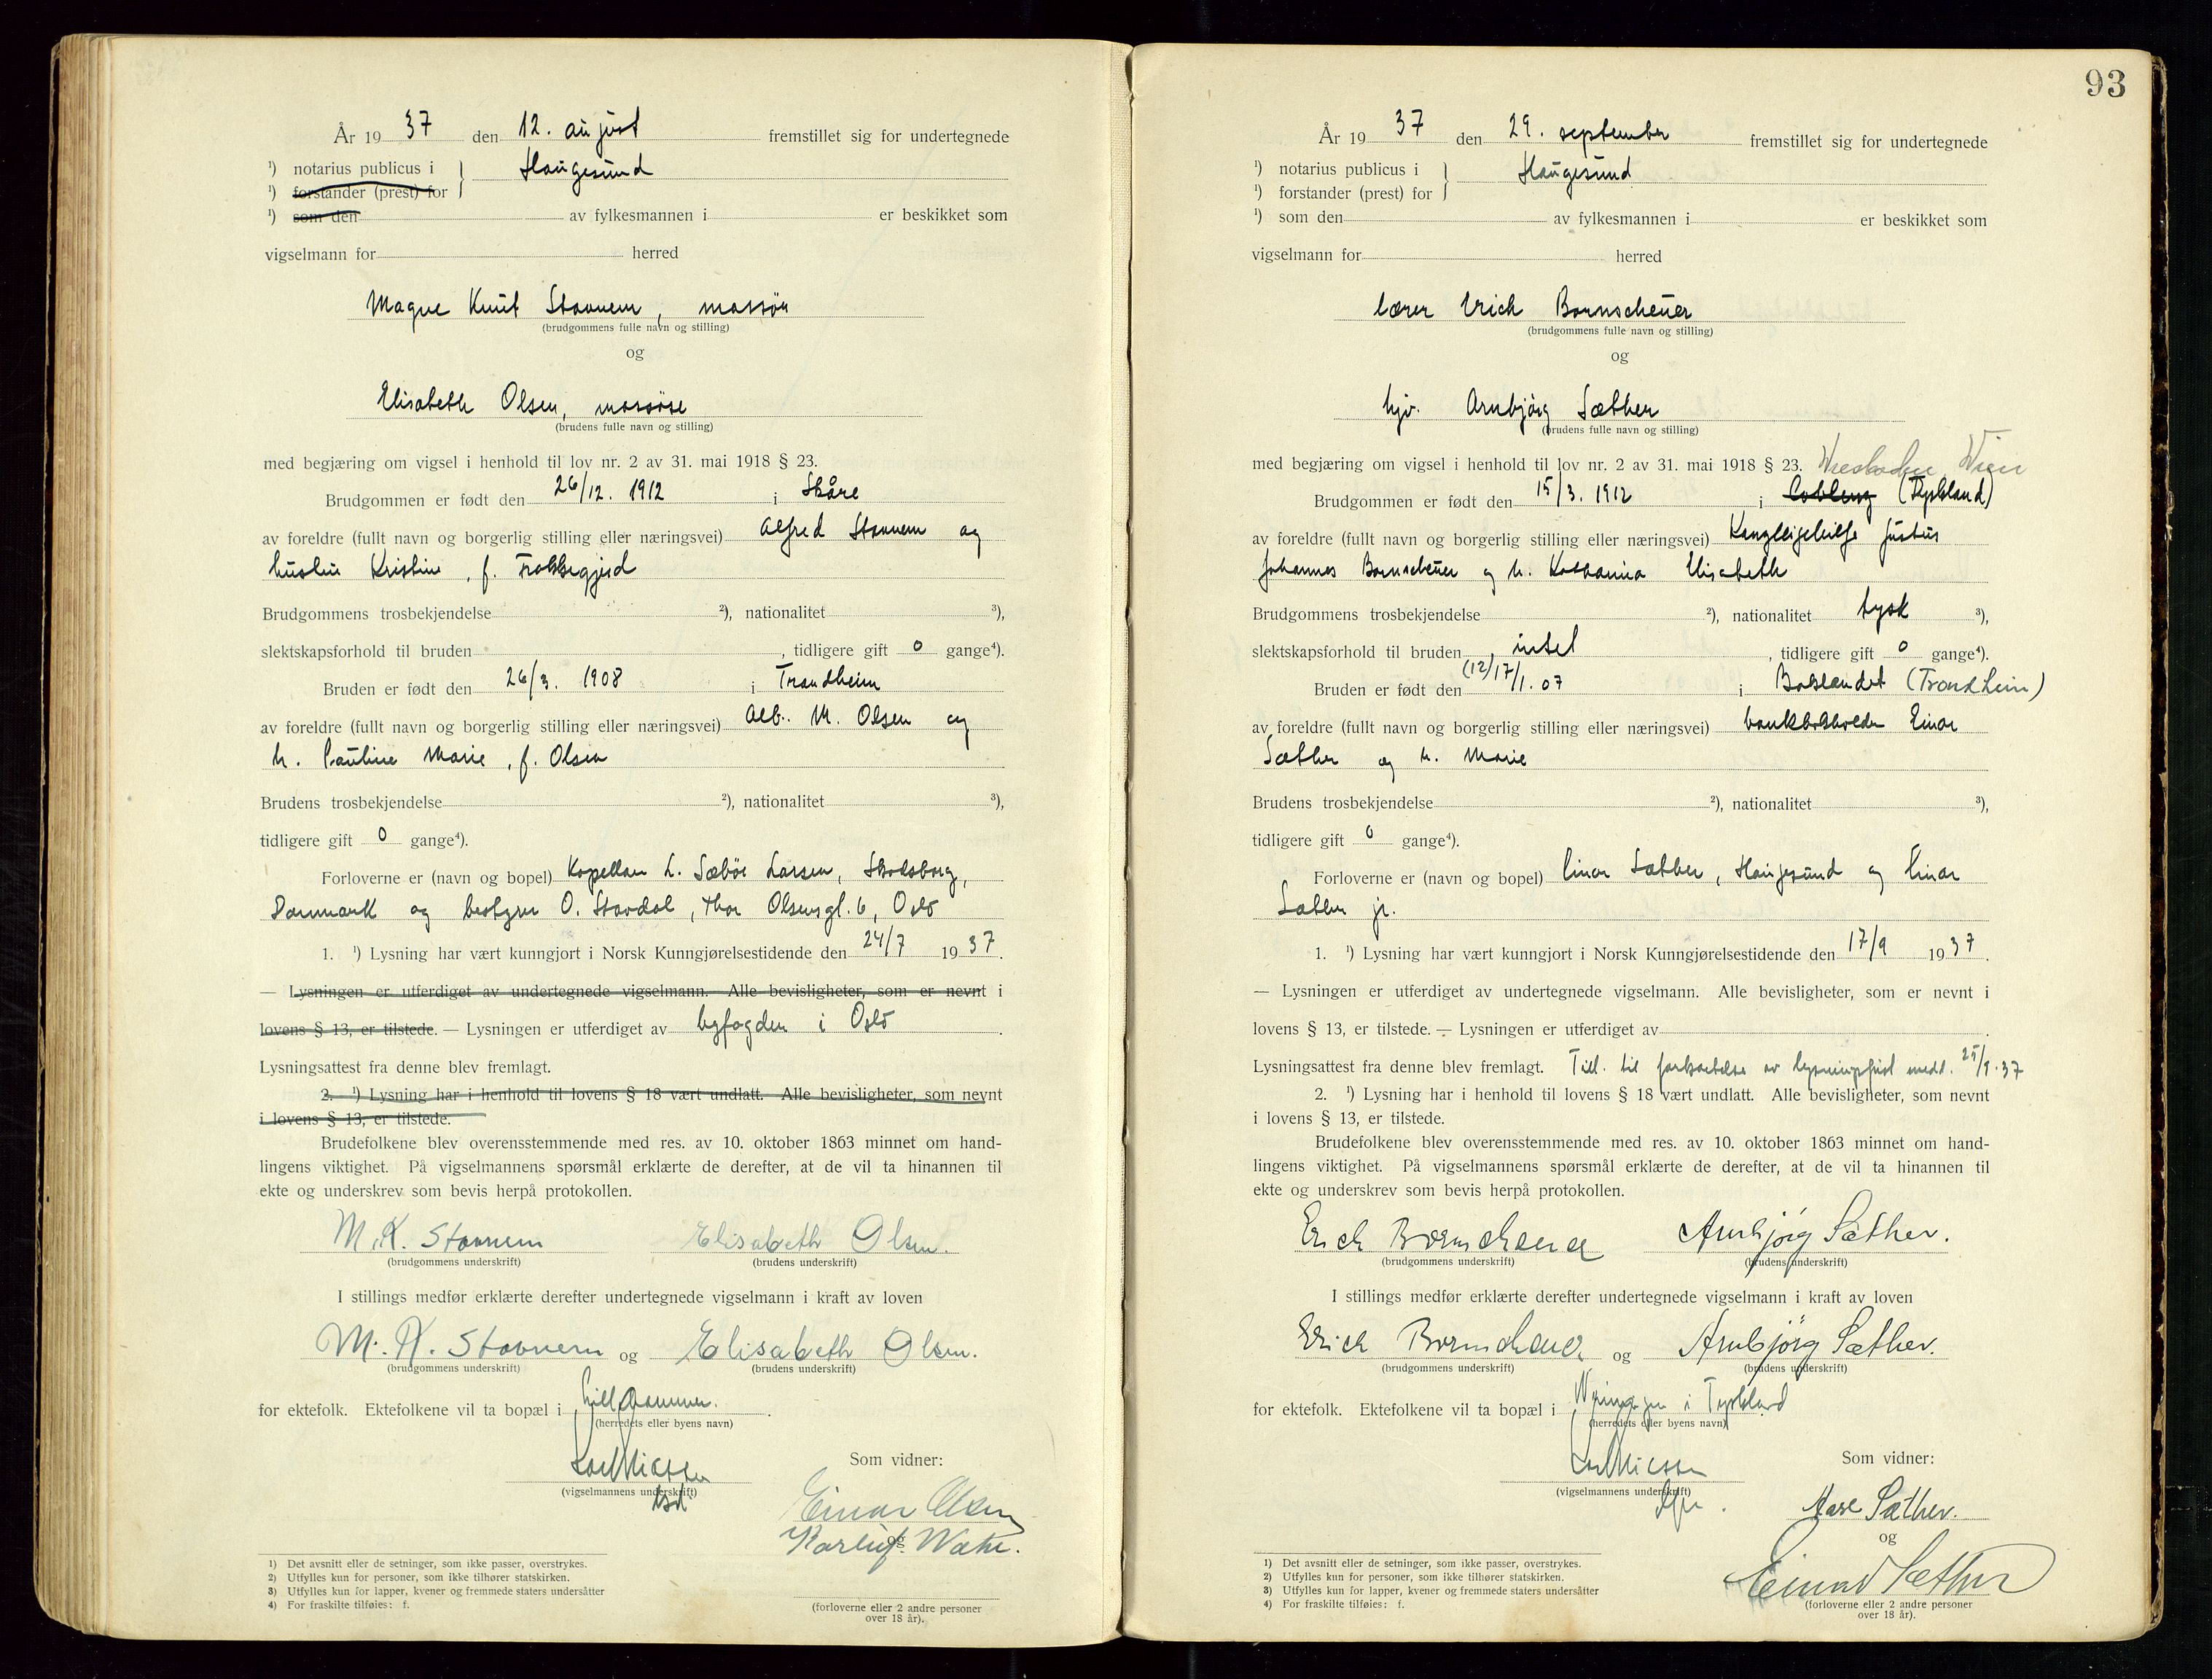 År 19 37 den 12. august fremstillet sig for undertegnede
¹) notarius publicus i } Haugesund
¹) forstander (prest) for
¹) som den av fylkesmannen i er beskikket som
vigselmann for herred
Magne Knut Stavnem, massør
(brudgommens fulle navn og stilling)
og
Elisabeth Olsen, massøse
(brudens fulle navn og stilling)
med begjæring om vigsel i henhold til lov nr. 2 av 31. mai 1918 § 23.
Brudgommen er født den 26/12. 1912 i Skåre
av foreldre (fullt navn og borgerlig stilling eller næringsvei) Alfred Stavnem og
hustru Kristine, f.
Brudgommens trosbekjendelse ²), nationalitet ³),
slektskapsforhold til bruden , tidligere gift 0 gange⁴).
Bruden er født den 26/3. 1908 i Trondheim
av foreldre (fullt navn og borgerlig stilling eller næringsvei) Alb. M. Olsen og
h. Pauline Marie, f. Olsen
Brudens trosbekjendelse ²), nationalitet ³),
tidligere gift 0 gange⁴).
Forloverne er (navn og bopel) Kapellan L. Sæbøe Larsen, Skodsborg,
Danmark og bestyrer O. Stavdal, Thor Olsensgt. 6, Oslo
1. ¹) Lysning har vært kunngjort i Norsk Kunngjørelsestidende den 24/7 19 37.
— Lysningen er utferdiget av undertegnede vigselmann. Alle bevisligheter, som er nevnt i
lovens § 13, er tilstede. — Lysningen er utferdiget av byfogden i Oslo .
Lysningsattest fra denne blev fremlagt.
2. ¹) Lysning har i henhold til lovens § 18 vært undlatt. Alle bevisligheter, som nevnt
i lovens § 13, er tilstede.
Brudefolkene blev overensstemmende med res. av 10. oktober 1863 minnet om hand-
lingens viktighet. På vigselmannens spørsmål erklærte de derefter, at de vil ta hinannen til
ekte og underskrev som bevis herpå protokollen.
M. K. Stavnem Elisabeth Olsen.
(brudgommens underskrift) (brudens underskrift)
I stillings medfør erklærte derefter undertegnede vigselmann i kraft av loven
M. K. Stavnem og Elisabeth Olsen.
(brudgommens underskrift) (brudens underskrift)
for ektefolk. Ektefolkene vil ta bopæl i Lillehammer.
(herredets eller byens navn)
Som vidner:
(vigselmannens underskrift)
Einar Olsen
og
(forloverne eller 2 andre personer
over 18 år).
1) Det avsnitt eller de setninger, som ikke passer, overstrykes.
2) Utfylles kun for personer, som ikke tilhører statskirken.
3) Utfylles kun for lapper, kvener og fremmede staters undersåtter
4) For fraskilte tilføies: f.
93
År 19 37 den 29. september fremstillet sig for undertegnede
¹) notarius publicus i } Haugesund
¹) forstander (prest) for
¹) som den av fylkesmannen i er beskikket som
vigselmann for herred
lærer Erich Bornscheuer
(brudgommens fulle navn og stilling)
og
hjv. Arnbjörg Sæther
(brudens fulle navn og stilling)
med begjæring om vigsel i henhold til lov nr. 2 av 31. mai 1918 § 23. Wiesbaden
Brudgommen er født den 15/3. 1912 i Coblenz (Tyskland)
av foreldre (fullt navn og borgerlig stilling eller næringsvei) Justus
Johannes Bornscheuer og h. Katharina Elisabeth
Brudgommens trosbekjendelse ²), nationalitet tysk ³),
slektskapsforhold til bruden intet , tidligere gift 0 gange⁴).
Bruden er født den (12/17/1. 07 i Bakslandet (Trondheim)
av foreldre (fullt navn og borgerlig stilling eller næringsvei) bankbokholder Einar
Sæther og h. Marie
Brudens trosbekjendelse ²), nationalitet ³),
tidligere gift 0 gange⁴).
Forloverne er (navn og bopel) Einar Sæther, Haugesund og Einar
Sæther jr.
1. ¹) Lysning har vært kunngjort i Norsk Kunngjørelsestidende den 17/9 19 37.
— Lysningen er utferdiget av undertegnede vigselmann. Alle bevisligheter, som er nevnt i
lovens § 13, er tilstede. — Lysningen er utferdiget av .
Lysningsattest fra denne blev fremlagt. Till. til forkortelse av lysningsfrist medd. 25/9.37
2. ¹) Lysning har i henhold til lovens § 18 vært undlatt. Alle bevisligheter, som nevnt
i lovens § 13, er tilstede.
Brudefolkene blev overensstemmende med res. av 10. oktober 1863 minnet om hand-
lingens viktighet. På vigselmannens spørsmål erklærte de derefter, at de vil ta hinannen til
ekte og underskrev som bevis herpå protokollen.
Erich Bornscheuer Arnbjörg Sæther.
(brudgommens underskrift) (brudens underskrift)
I stillings medfør erklærte derefter undertegnede vigselmann i kraft av loven
Erich Bornscheuer og Arnbjörg Sæther.
(brudgommens underskrift) (brudens underskrift)
for ektefolk. Ektefolkene vil ta bopæl i i Tyskland
(herredets eller byens navn)
Som vidner:
(vigselmannens underskrift)
Aase Sæther.
og
Einar Sæther
(forloverne eller 2 andre personer
over 18 år).
1) Det avsnitt eller de setninger, som ikke passer, overstrykes.
2) Utfylles kun for personer, som ikke tilhører statskirken.
3) Utfylles kun for lapper, kvener og fremmede staters undersåtter
4) For fraskilte tilføies: f.